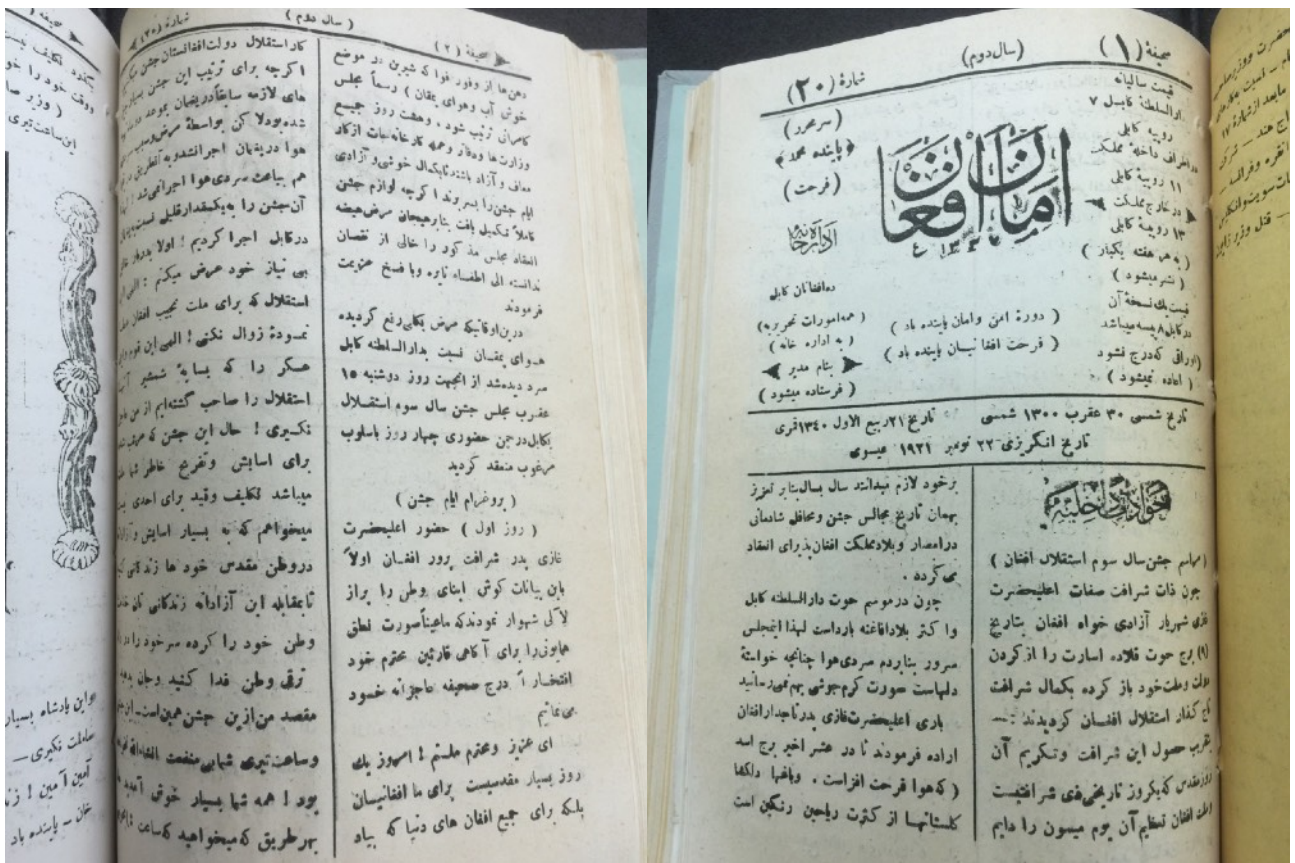 صحیفهٔ (۱)
(سال دوم)
شمارهٔ (۲۰)
قیمت سالیانه
دارالسلطنهٔ کابل ۷
روپیه کابلی
۱۱ روپیهٔ کابلی
در خارج مملکت
۱۳ روپیهٔ کابلی
(به هر هفته یکبار)
(نشر میشود)
قیمت یك نسخهٔ آن
در کابل ۸ پیسه میباشد
(اوراقی که درج نشود)
(اعاده نمیشود)
امان افغان
۱۳۳۷
(دورهٔ امن وامان پاینده باد)
(فرحت افغانیسان پاینده باد)
(سرمحرر)
﴿پاینده محمد﴾
(فرحت)
اداره خانه
ده افغانان کابل
(همه امورات تحریریه)
(به اداره خانه)
بنام مدیر
(فرستاده میشود)
تاریخ شمسی ۳۰ عقرب ۱۳۰۰ شمسی
تاریخ ۲۱ ربیع الاول ۱۳۴۰ قمری
تاریخ انگریزی ۲۲ نومبر ۱۹۲۱ عیسوی
حوادث داخلیه
(مراسم جشن سال سوم استقلال افغان)
چون ذات شرافت صفات اعلیحضرت
غازی شهریار آزادی خواه افغان بتاریخ
(۹) برج حوت قلاده اسارت را از کردن
دولت وملت خود باز کرده بکمال شرافت
تاج کذار استقلال افغسان کردیدند :—
بتقرب حصول این شرافت وتکریم آن
روز مقدس که یکروز تاریخی ذی شرافتیست
وملت افغان تعظیم آن یوم میمون را دایم
برخود لازم میدانند سال بسال بنابر تعزز
بهمان تاریخ مجالس جشن ومحافل شادمانی
در امصار وبلاد مملکت افغان پذیرای انعقاد
می کردد .
چون در موسم حوت دارالسلطنه کابل
وا کثر بلاد افاغنه بارد است لهذا اینمجلس
سرور بنابر دم سردی هوا چنانچه خواستهٔ
دلهاست صورت کرم جوشی بهم نمی رسانید
باری اعلیحضرت غازی پدر تاجدار افغان
اراده فرمودند تا در عشر اخیر برج اسد
(که هوا فرحت افزاست . وباغها دلکشا
کلستانها از کثرت ریاحین رنکین است
صحیفهٔ (۲)
(سال دوم)
شمارهٔ (۲۰)
دهن ها از وفور فوا که شیرین در موضع
خوش آب وهوای پغمان) رسماً مجلس
کامرانی ترتیب شود ، وهشت روز جمیع
وزارت ها ودفاتر وعمله کارخانه جات از کار
معاف و آزاد باشند تا بکمال خوشی و آزادی
ایام جشن را بسر برند اکرچه لوازم جشن
کاملاً تکمیل یافت بنابر هیجان مرض هیضه
انعقاد مجلس مذ کور را خالی از نقصان
ندانسته الی اطفاء نایره وبا فسخ عزیمت
فرمودند
درین اوقاتیکه مرض بکلی رفع کردیده
هوای پغمان نسبت بدار السلطنه کابل
سرد دیده شد از انجهت روز دوشنبه ۱۵
عقرب مجلس جشن سال سوم استقسلال
بکابل در چمن حضوری چهار روز باسلوب
مرغوب منعقد کردید
(پروغرام ایام جشن)
(روز اول) حضور اعلیحضرت
غازی پدر شرافت پرور افغان اولاً
باین بیانات کوش ابنای وطن را پراز
لآلی شهوار نمودند که ما عیناً صورت نطق
همایونی را برای آ کاهی قارئین محترم خود
افتخار آ درج صحیفه عاجزانه خسود
می نمائیم
ای عزیز ومحترم ملتم ! امروز یك
روز بسیار مقدسیست برای ما افغانیسان
بلکه برای جمیع افغان های دنیا که بیاد
کار استقلال دولت افغانستان جشن میکنند
اکرچه برای ترتیب این جشن بسیار
های لازمه سابقاً در پغمان بموعد
شده بود لا کن بواسطهٔ مرض وسبب
هوا در پغمان اجرا نشد وبه آنطریق
هم بباعث سردی هوا اجرا نمی شد !
آن جشن را به یکمقدار قلیل
در کابل اجرا کردیم ! اولا بدربار
بی نیاز خود عرض میکنم : الهی
استقلال که برای ملت نجیب افغان
نمودهٔ زوال نکنی ! الهی این قوم
عسکر را که بسایهٔ شمشیر
استقلال را صاحب کشته ایم از من
نکیری ! حال این جشن که
برای اسایش وتفریح خاطر شما
میباشد تکلیف وقید برای احدی
میخواهم که به بسیار اسایش
در وطن مقدس خود ها زندکانی
تا بمقابله این آزادانه زندکانی تان
وطن خود را کرده سر خود را در
ترقی وطن فدا کنید وجان
مقصد من ازین جشن همین است
وساعت تیری شما بی منفعت
بود ! همه شما بسیار خوش آمدید
بهر طریق که میخواهید که ساعت